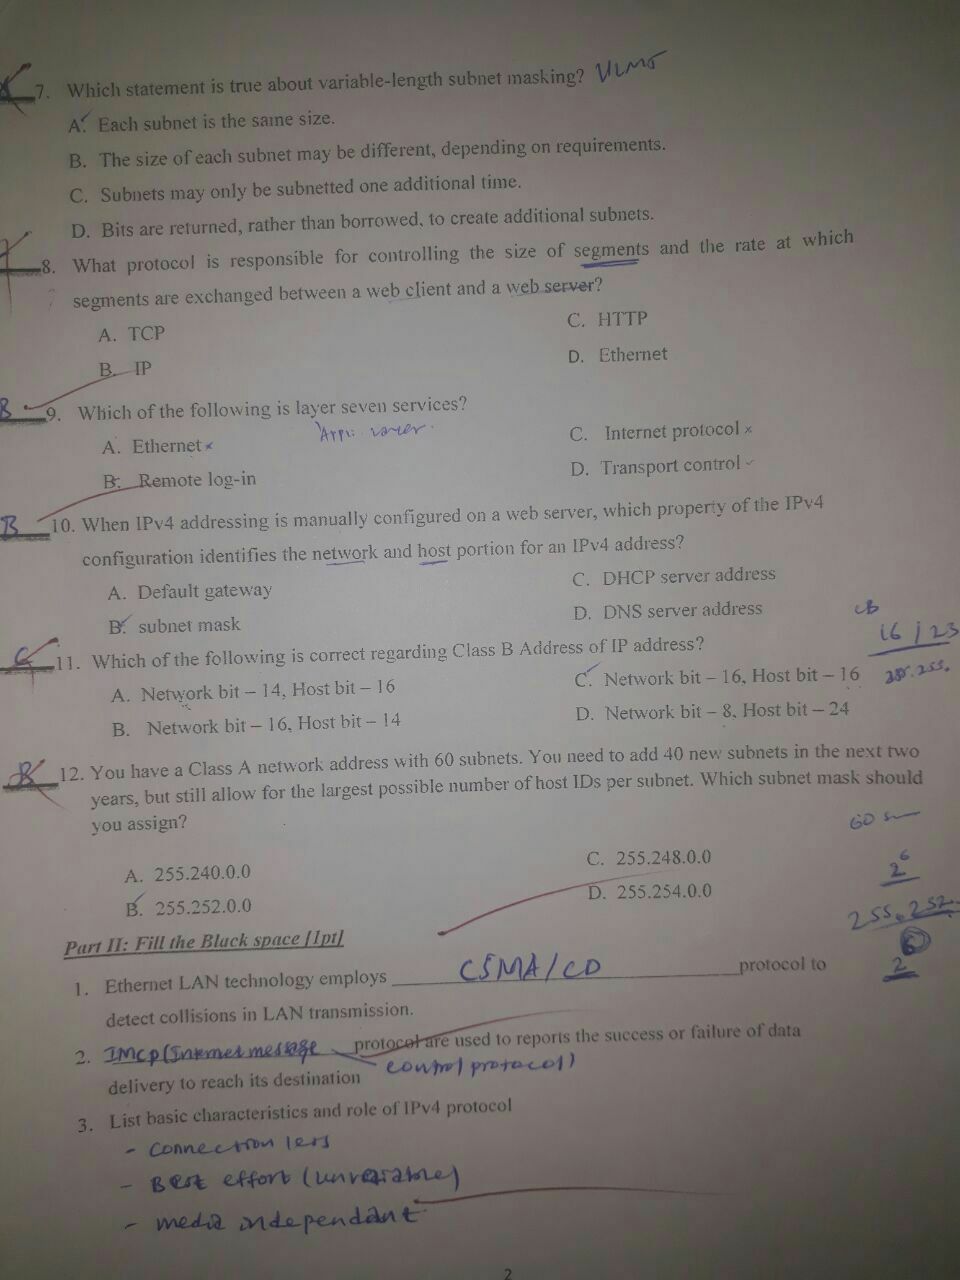 7. Which statement is true about variable-length subnet masking? VLMS
A. Each subnet is the same size.
B. The size of each subnet may be different, depending on requirements.
C. Subnets may only be subnetted one additional time.
D. Bits are returned, rather than borrowed, to create additional subnets.
8. What protocol is responsible for controlling the size of segments and the rate at which
segments are exchanged between a web client and a web server?
A. TCP
C. HTTP
B. IP
D. Ethernet
B 9. Which of the following is layer seven services?
Appli layer.
A. Ethernet x
C. Internet protocol x
B. Remote log-in
D. Transport control
B 10. When IPv4 addressing is manually configured on a web server, which property of the IPv4
configuration identifies the network and host portion for an IPv4 address?
A. Default gateway
C. DHCP server address
B. subnet mask
D. DNS server address
CB
16 / 23
C 11. Which of the following is correct regarding Class B Address of IP address?
A. Network bit – 14, Host bit – 16
C. Network bit – 16, Host bit – 16
255.255.
B. Network bit – 16, Host bit – 14
D. Network bit – 8, Host bit – 24
B 12. You have a Class A network address with 60 subnets. You need to add 40 new subnets in the next two
years, but still allow for the largest possible number of host IDs per subnet. Which subnet mask should
you assign?
60
A. 255.240.0.0
C. 255.248.0.0
2^6
B. 255.252.0.0
D. 255.254.0.0
255.252.
Part II: Fill the Black space [1pt]
2^6
1. Ethernet LAN technology employs CSMA/CD protocol to
detect collisions in LAN transmission.
2. IMCP (Internet message protocol are used to reports the success or failure of data
control protocol)
delivery to reach its destination
3. List basic characteristics and role of IPv4 protocol
- Connection less
- Best effort (unreriable)
- media independant
2